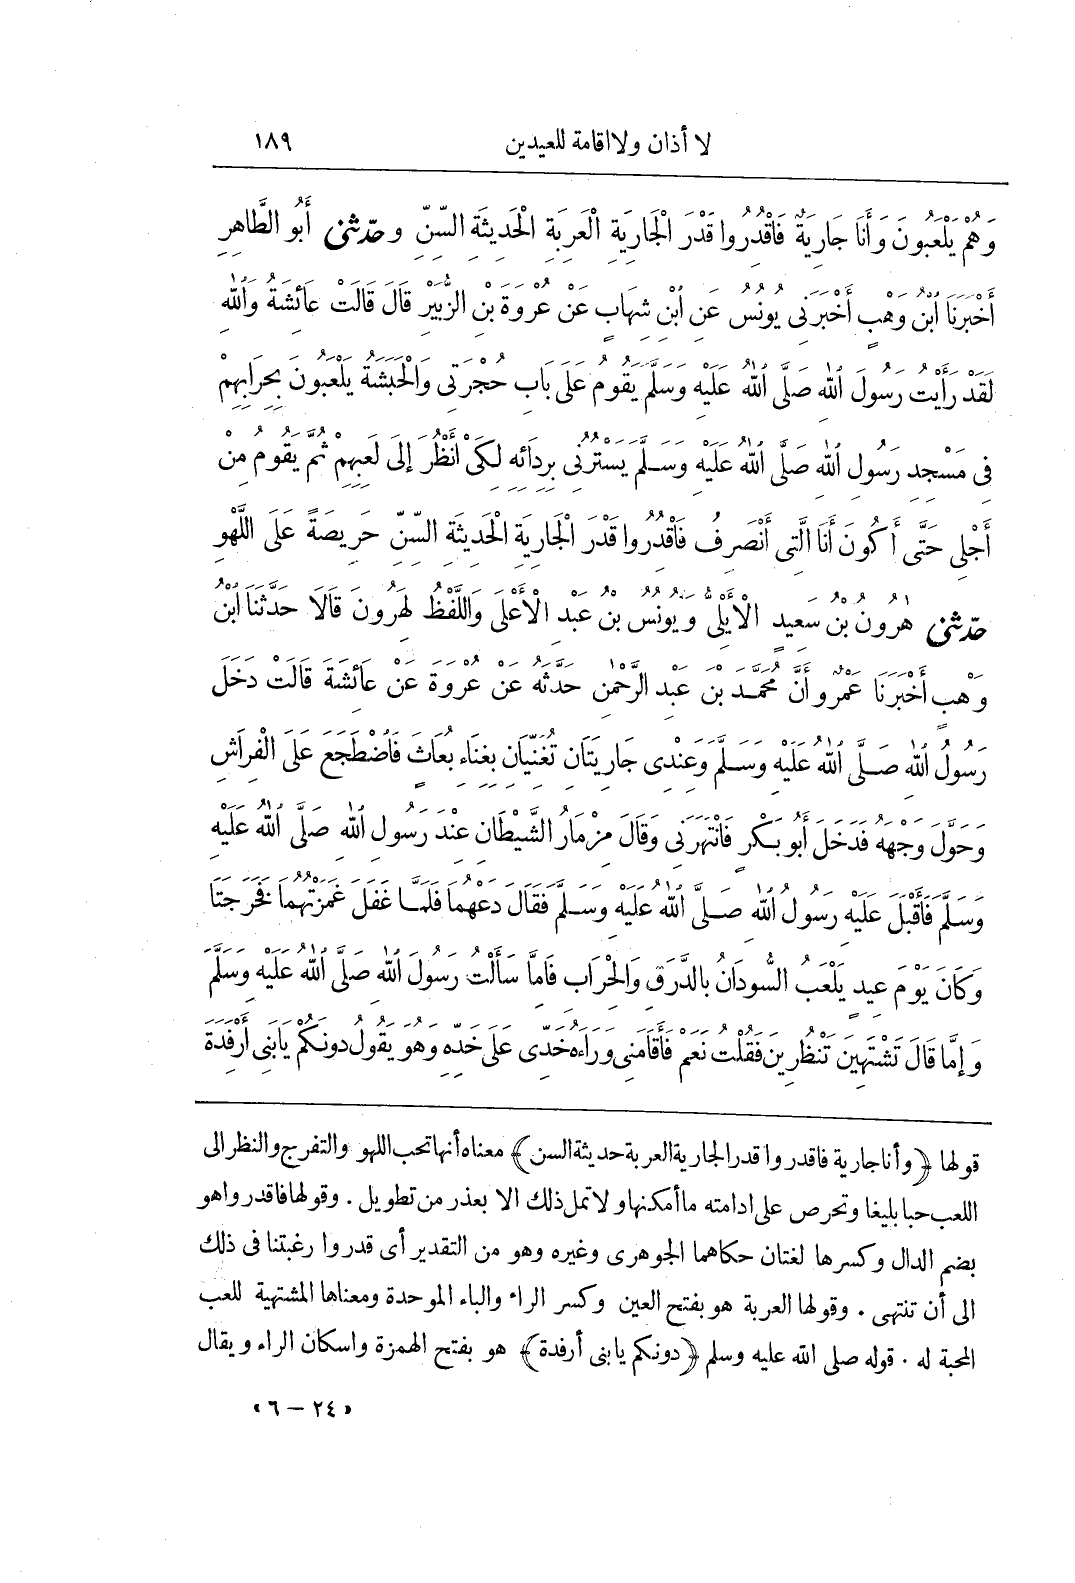 لا أذان ولا اقامة للعيدين ١٨٩
وَهُمْ يَلْعَبُونَ وَأَنَا جَارِيَةٌ فَاقْدُرُوا قَدْرَ الْجَارِيَةِ الْعَرِبَةِ الْحَدِيثَةِ السِّنِّ وحَدَّثَنِى أَبُو الطَّاهِرِ
أَخْبَرَنَا ابْنُ وَهْبٍ أَخْبَرَنِى يُونُسُ عَنِ ابْنِ شِهَابٍ عَنْ عُرْوَةَ بْنِ الزُّبَيْرِ قَالَ قَالَتْ عَائِشَةُ وَاللهِ
لَقَدْ رَأَيْتُ رَسُولَ اللهِ صَلَّى اللهُ عَلَيْهِ وَسَلَّمَ يَقُومُ عَلَى بَابِ حُجْرَتِى وَالْحَبَشَةُ يَلْعَبُونَ بِحِرَابِهِمْ
فِى مَسْجِدِ رَسُولِ اللهِ صَلَّى اللهُ عَلَيْهِ وَسَلَّمَ يَسْتُرُنِى بِرِدَائِهِ لِكَىْ أَنْظُرَ إِلَى لَعِبِهِمْ ثُمَّ يَقُومُ مِنْ
أَجْلِى حَتَّى أَكُونَ أَنَا الَّتِى أَنْصَرِفُ فَاقْدُرُوا قَدْرَ الْجَارِيَةِ الْحَدِيثَةِ السِّنِّ حَرِيصَةً عَلَى اللَّهْوِ
حَدَّثَنِى هٰرُونُ بْنُ سَعِيدٍ الْأَيْلِىُّ وَيُونُسُ بْنُ عَبْدِ الْأَعْلَى وَاللَّفْظُ لِهٰرُونَ قَالَا حَدَّثَنَا ابْنُ
وَهْبٍ أَخْبَرَنَا عَمْرٌو أَنَّ مُحَمَّدَ بْنَ عَبْدِ الرَّحْمٰنِ حَدَّثَهُ عَنْ عُرْوَةَ عَنْ عَائِشَةَ قَالَتْ دَخَلَ
رَسُولُ اللهِ صَلَّى اللهُ عَلَيْهِ وَسَلَّمَ وَعِنْدِى جَارِيَتَانِ تُغَنِّيَانِ بِغِنَاءِ بُعَاثٍ فَاضْطَجَعَ عَلَى الْفِرَاشِ
وَحَوَّلَ وَجْهَهُ فَدَخَلَ أَبُو بَكْرٍ فَانْتَهَرَنِى وَقَالَ مِزْمَارُ الشَّيْطَانِ عِنْدَ رَسُولِ اللهِ صَلَّى اللهُ عَلَيْهِ
وَسَلَّمَ فَأَقْبَلَ عَلَيْهِ رَسُولُ اللهِ صَلَّى اللهُ عَلَيْهِ وَسَلَّمَ فَقَالَ دَعْهُمَا فَلَمَّا غَفَلَ غَمَزْتُهُمَا فَخَرَجَتَا
وَكَانَ يَوْمَ عِيدٍ يَلْعَبُ السُّودَانُ بِالدَّرَقِ وَالْحِرَابِ فَإِمَّا سَأَلْتُ رَسُولَ اللهِ صَلَّى اللهُ عَلَيْهِ وَسَلَّمَ
وَإِمَّا قَالَ تَشْتَهِينَ تَنْظُرِينَ فَقُلْتُ نَعَمْ فَأَقَامَنِى وَرَاءَهُ خَدِّى عَلَى خَدِّهِ وَهُوَ يَقُولُ دُونَكُمْ يَا بَنِى أَرْفِدَةَ
قولها ﴿وأنا جارية فاقدروا قدر الجارية العربة حديثة السن﴾ معناه أنها تحب اللهو والتفرج والنظر الى
اللعب حبا بليغا وتحرص على ادامته ما أمكنها ولا تمل ذلك الا بعذر من تطويل . وقولها فاقدروا هو
بضم الدال وكسرها لغتان حكاهما الجوهرى وغيره وهو من التقدير أى قدروا رغبتنا فى ذلك
الى أن تنتهى . وقولها العربة هو بفتح العين وكسر الراء والباء الموحدة ومعناها المشتهية للعب
المحبة له . قوله صلى الله عليه وسلم ﴿دونكم يا بنى أرفدة﴾ هو بفتح الهمزة واسكان الراء ويقال
«٢٤ — ٦»